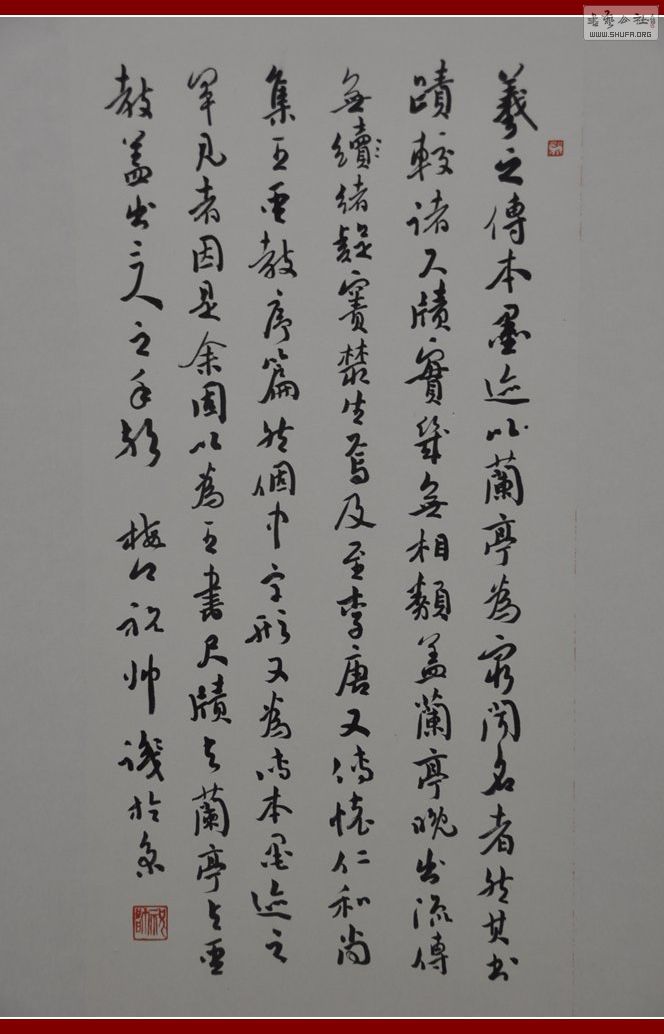 羲之傳本墨迹以蘭亭為最聞名者然其書
蹟較諸尺牘實幾無相類蓋蘭亭晚出流傳
無續緒疑竇叢生焉及至李唐又傳懷仁和尚
集王聖教序篇然個中字形又為傳本墨迹之
罕見者因是余固以為王書尺牘与蘭亭与聖
教蓋出三人之手歟 梅石祝帅識於京
祝帅
書藝公社
WWW.SHUFA.ORG